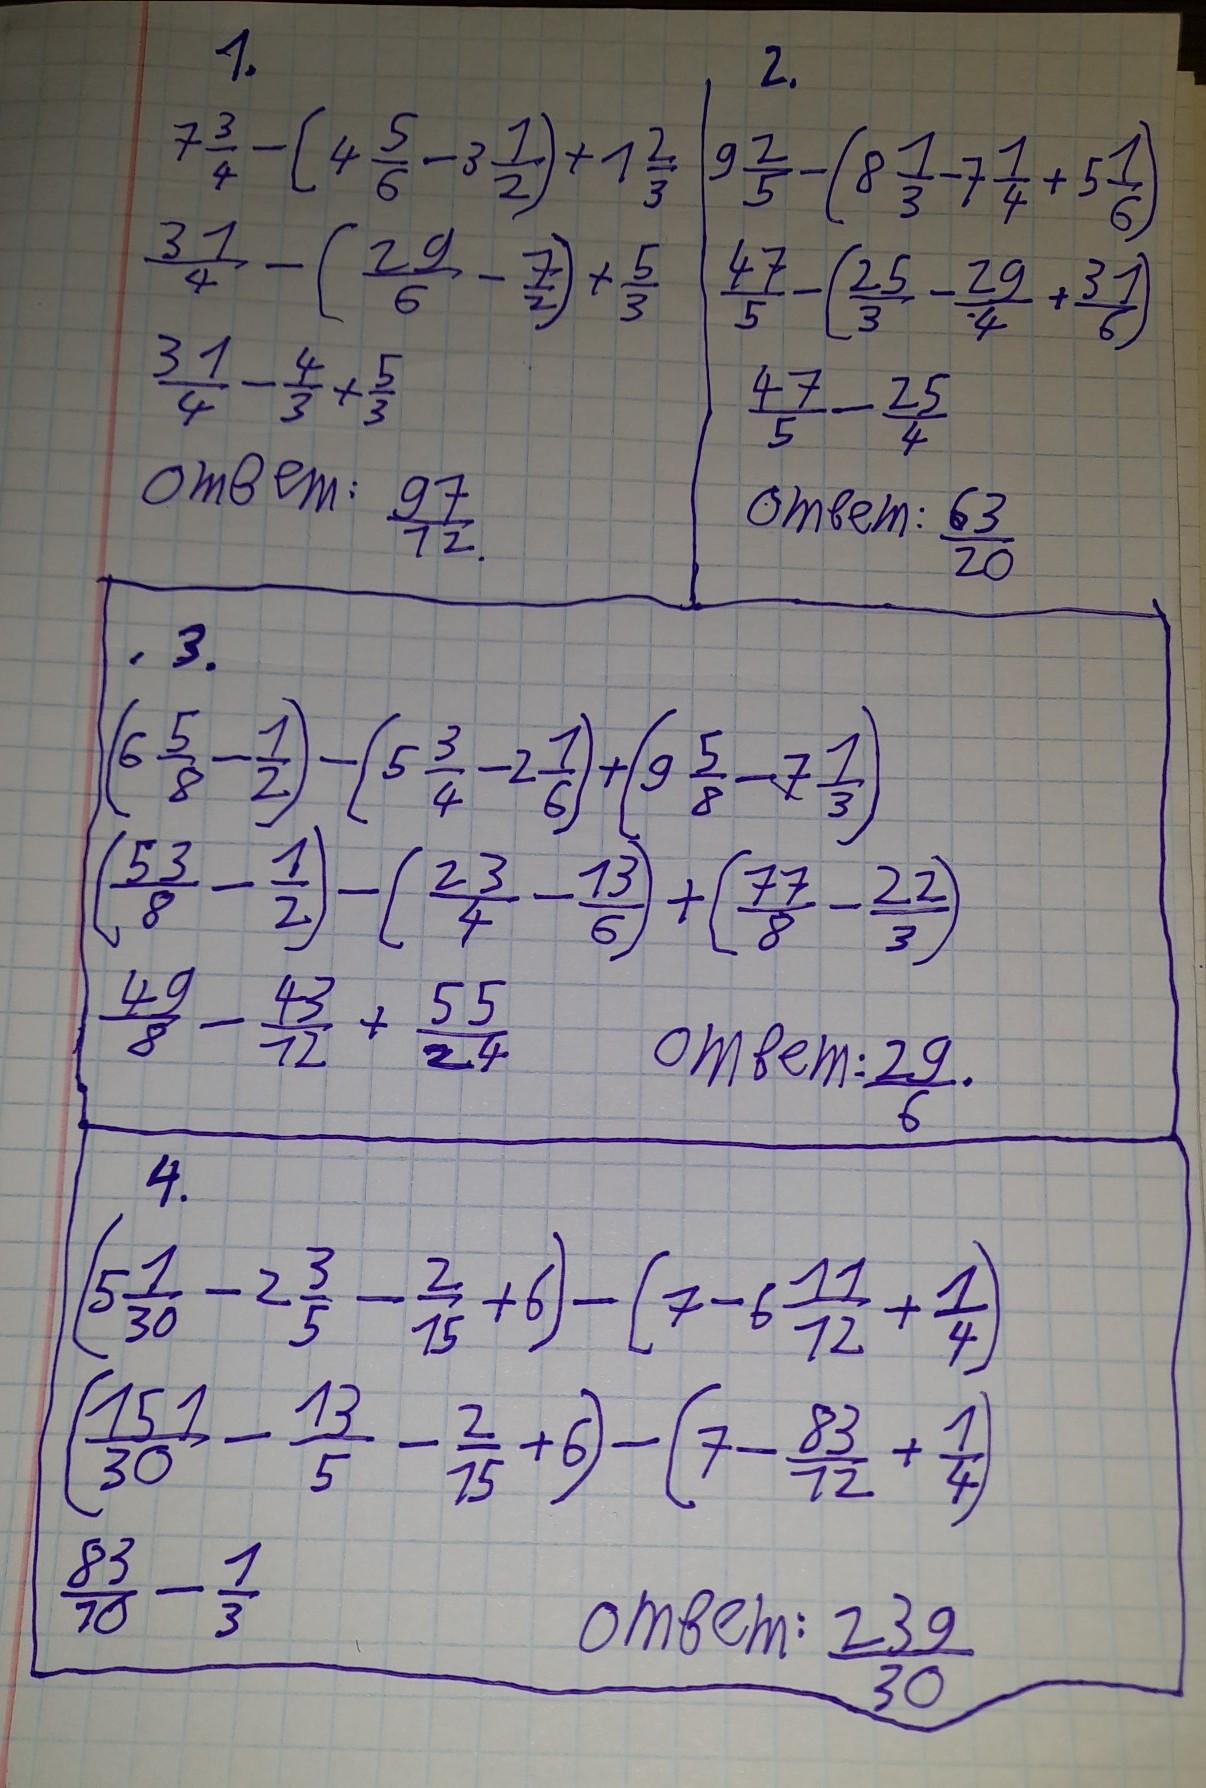 1.
7 3/4 − (4 5/6 − 3 1/2) + 1 2/3
31/4 − (29/6 − 7/2) + 5/3
31/4 − 4/3 + 5/3
ответ: 97/12.
2.
9 2/5 − (8 1/3 − 7 1/4 + 5 1/6)
47/5 − (25/3 − 29/4 + 31/6)
47/5 − 25/4
ответ: 63/20
3.
(6 5/8 − 1/2) − (5 3/4 − 2 1/6) + (9 5/8 − 7 1/3)
(53/8 − 1/2) − (23/4 − 13/6) + (77/8 − 22/3)
49/8 − 43/12 + 55/24
ответ: 29/6.
4.
(5 1/30 − 2 3/5 − 2/15 + 6) − (7 − 6 11/12 + 1/4)
(151/30 − 13/5 − 2/15 + 6) − (7 − 83/12 + 1/4)
83/10 − 1/3
ответ: 239/30